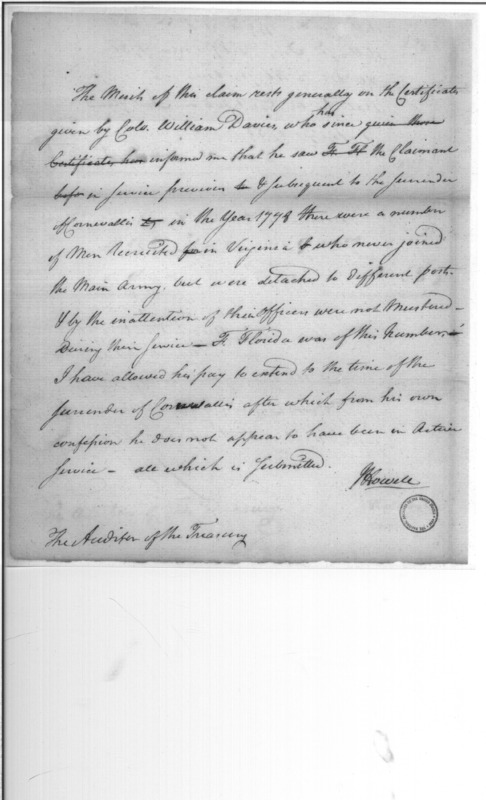 The Merit of this claim rests generally on the Certificate
given by Colo. William Davies, who has since given these
Certificates, how informed me that he saw F. Fl the Claimant
before in Service previous to & Subsequent to the Surrender
of Cornwallis in the Year 1778 there were a number
of Men Recruited in Virginia & who never joined
the Main Army. but were detached to different posts.
& by the inattention of their Officers were not Mustered -
During their Service - F. Florida was of this Number,
I have allowed his pay to extend to the time of the
Surrender of Cornwallis after which from his own
confession he does not appear to have been in Active
Service - all which is Submitted.
JHowell
The Auditor of the Treasury